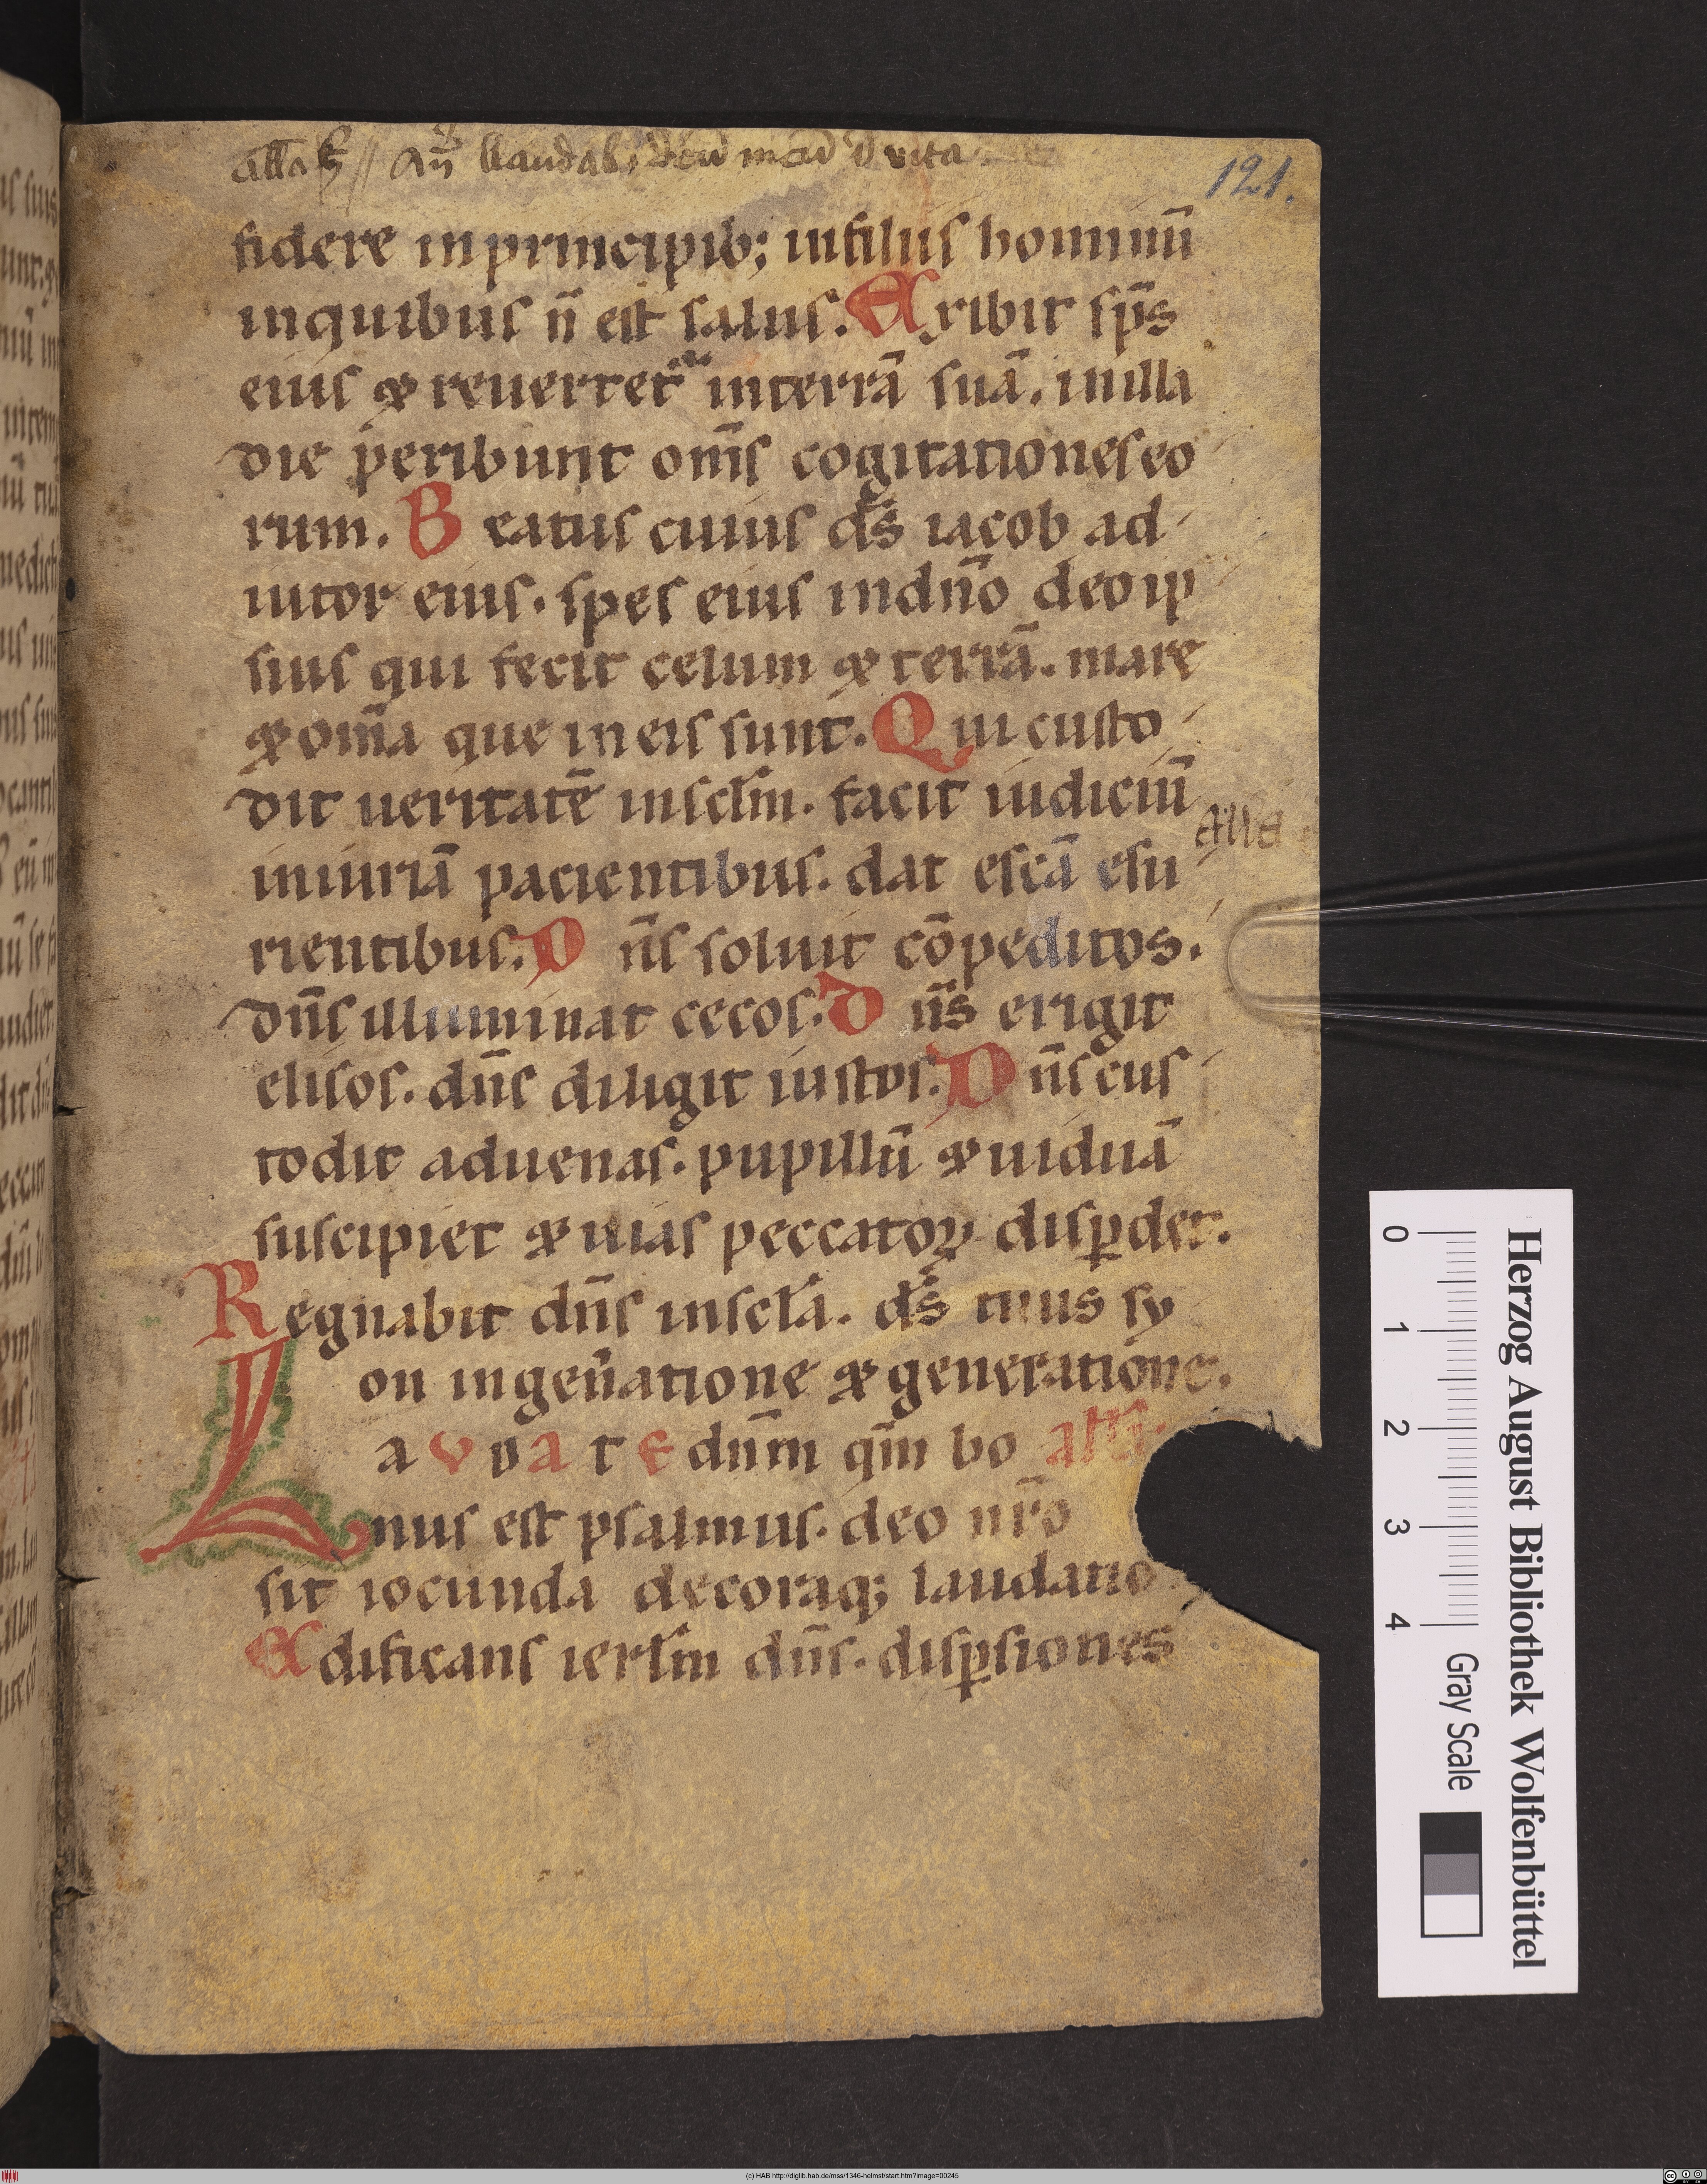 121.
fidere in principib; in filiis hominū
in quibus n̄ est salus. Exibit sp̄s
eius & reuertet᷑ in terrā suā. in illa
die peribunt om̄s cogitationes eo
rum. Beatus cuius ds̄ iacob ad
iutor eius. spes eius in dn̄o deo ip
sius qui fecit celum & terrā. mare
& om̄a que in eis sunt. Qui custo
dit ueritatē in sclm̄. facit iudiciū
iniuriā pacientibus. dat escā esu
rientibus. Dn̄s soluit cōpeditos.
dn̄s illuminat cecos. Dn̄s erigit
elisos. dn̄s diligit iustos. Dn̄s cus
todit aduenas. pupillū & uiduā
suscipiet & uias peccatoꝝ disꝑdet.
Regnabit dn̄s in scl̄a. ds̄ tuus sy
on in gen̄atione & generatione.
Laudate dn̄m qm̄ bo
nus est psalmus. deo nr̄o
sit iocunda decoraq; laudatio
Edificans ierlm̄ dn̄s. disꝑsiones
Herzog August Bibliothek Wolfenbüttel
0 1 2 3 4 Gray Scale
(c) HAB http://diglib.hab.de/mss/1346-helmst/start.htm?image=00245